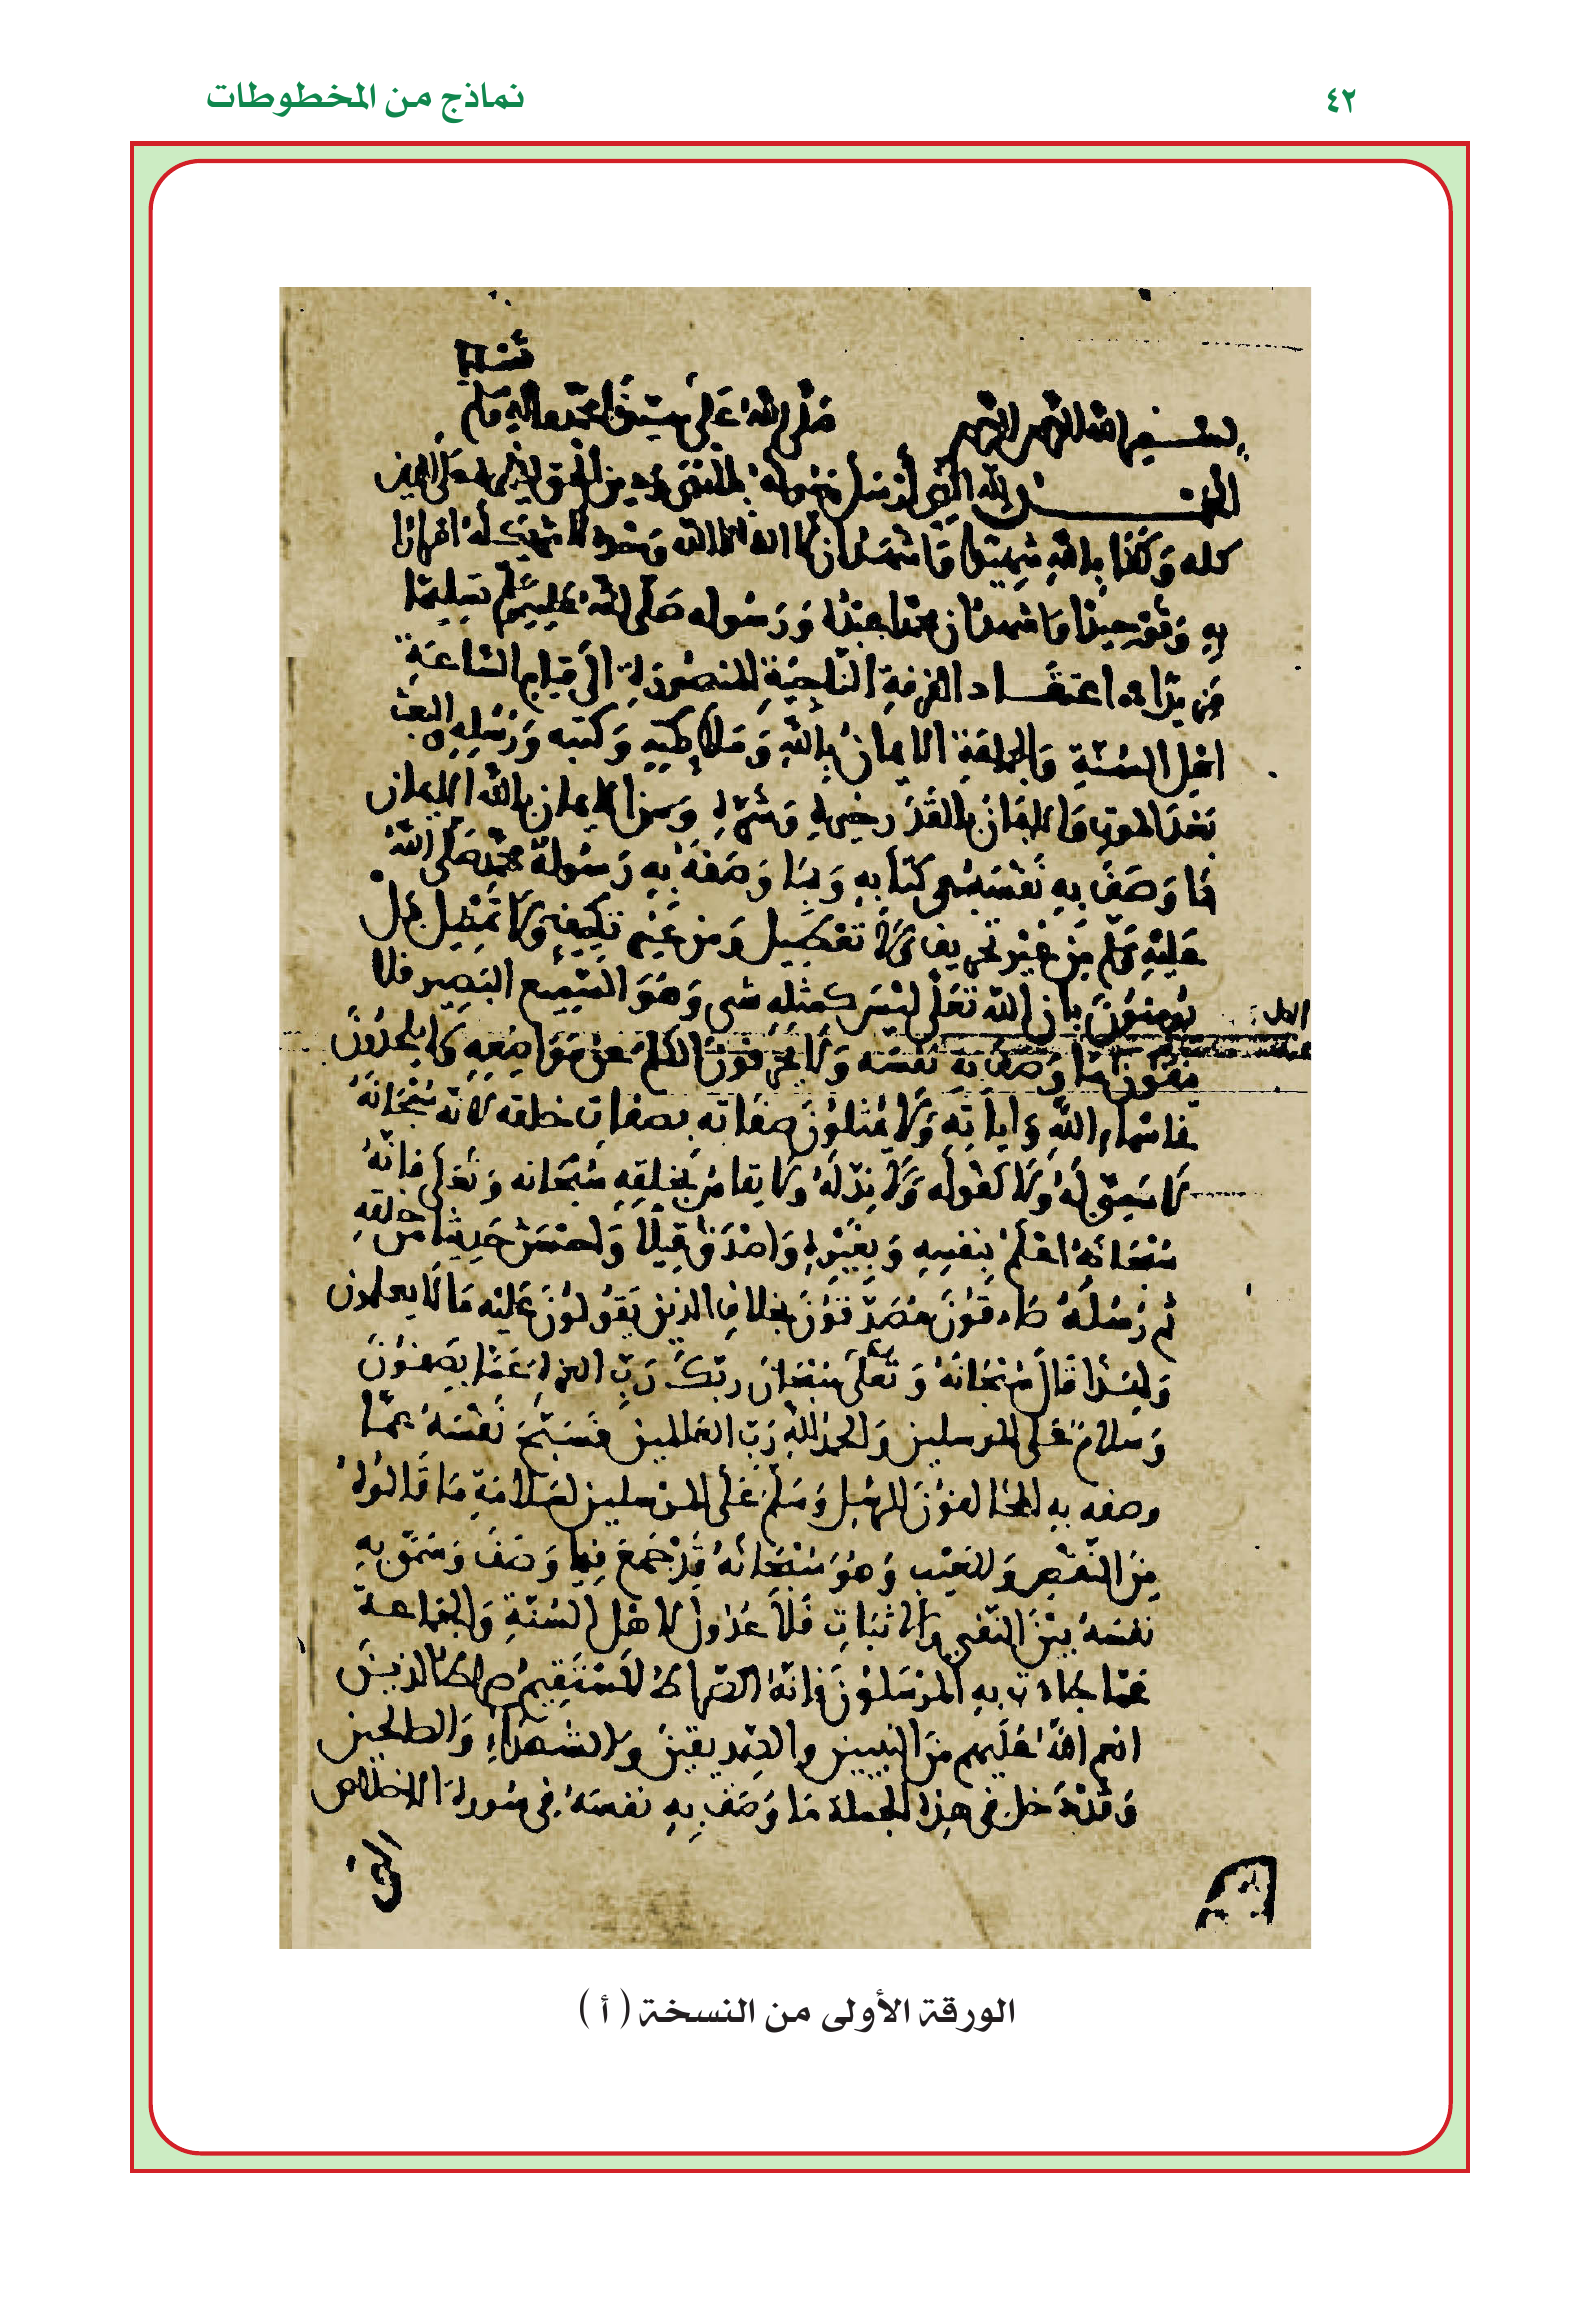 ٤٢
نماذج من المخطوطات
بسم الله الرحمن الرحيم صلى الله على سيدنا محمد واله وسلم
الحمد لله الذي أرسل رسوله بالهدى ودين الحق ليظهره على الدين
كله وكفا بالله شهيدا واشهد ان لا اله الا الله وحده لا شريك له اقرارا
به وتوحيدا واشهد ان محمدا عبده ورسوله صلى الله عليه وسلم تسليما
اعتقاد الفرقة الناجية المنصورة الى قيام الساعة
اهل السنة والجماعة الايمان بالله وملايكته وكتبه ورسله والبعث
بعد الموت والايمان بالقدر خيره وشره ومن الايمان بالله الايمان
بما وصف به نفسه في كتابه وبما وصفه به رسوله محمد صلى الله
عليه وسلم من غير تحريف ولا تعطيل ومن غير تكييف ولا تمثيل بل
يومنون بان الله تعلى ليس كمثله شي وهو السميع البصير فلا
ينفون ما وصف به نفسه ولا يحرفون الكلم عن مواضعه ولا يلحدون
في اسماء الله واياته ولا يمثلون صفاته بصفات خلقه لانه سبحانه
لا سمي له ولا كفو له ولا ند له ولا يقاس بخلقه سبحانه وتعلى فانه
سبحانه اعلم بنفسه وبغيره واصدق قيلا واحسن حديثا من خلقه
ثم رسله صادقون مصدقون بخلاف الذين يقولون عليه ما لا يعلمون
ولهذا قال سبحانه وتعلى سبحان ربك رب العزة عما يصفون
وسلام على المرسلين والحمد لله رب العلمين فسبح نفسه عما
وصفه به المخالفون للرسل وسلم على المرسلين لسلامة ما قالوه
من النقص والعيب وهو سبحانه قد جمع فيما وصف وسمى به
نفسه بين النفي والاثبات فلا عدول لاهل السنة والجماعة
عما جاءت به المرسلون فانه الصراط المستقيم صراط الذين
انعم الله عليهم من النبيين والصديقين والشهداء والصلحين
وقد دخل في هذه الجملة ما وصف به نفسه في سورة الاخلاص
الورقة الأولى من النسخة ( أ )